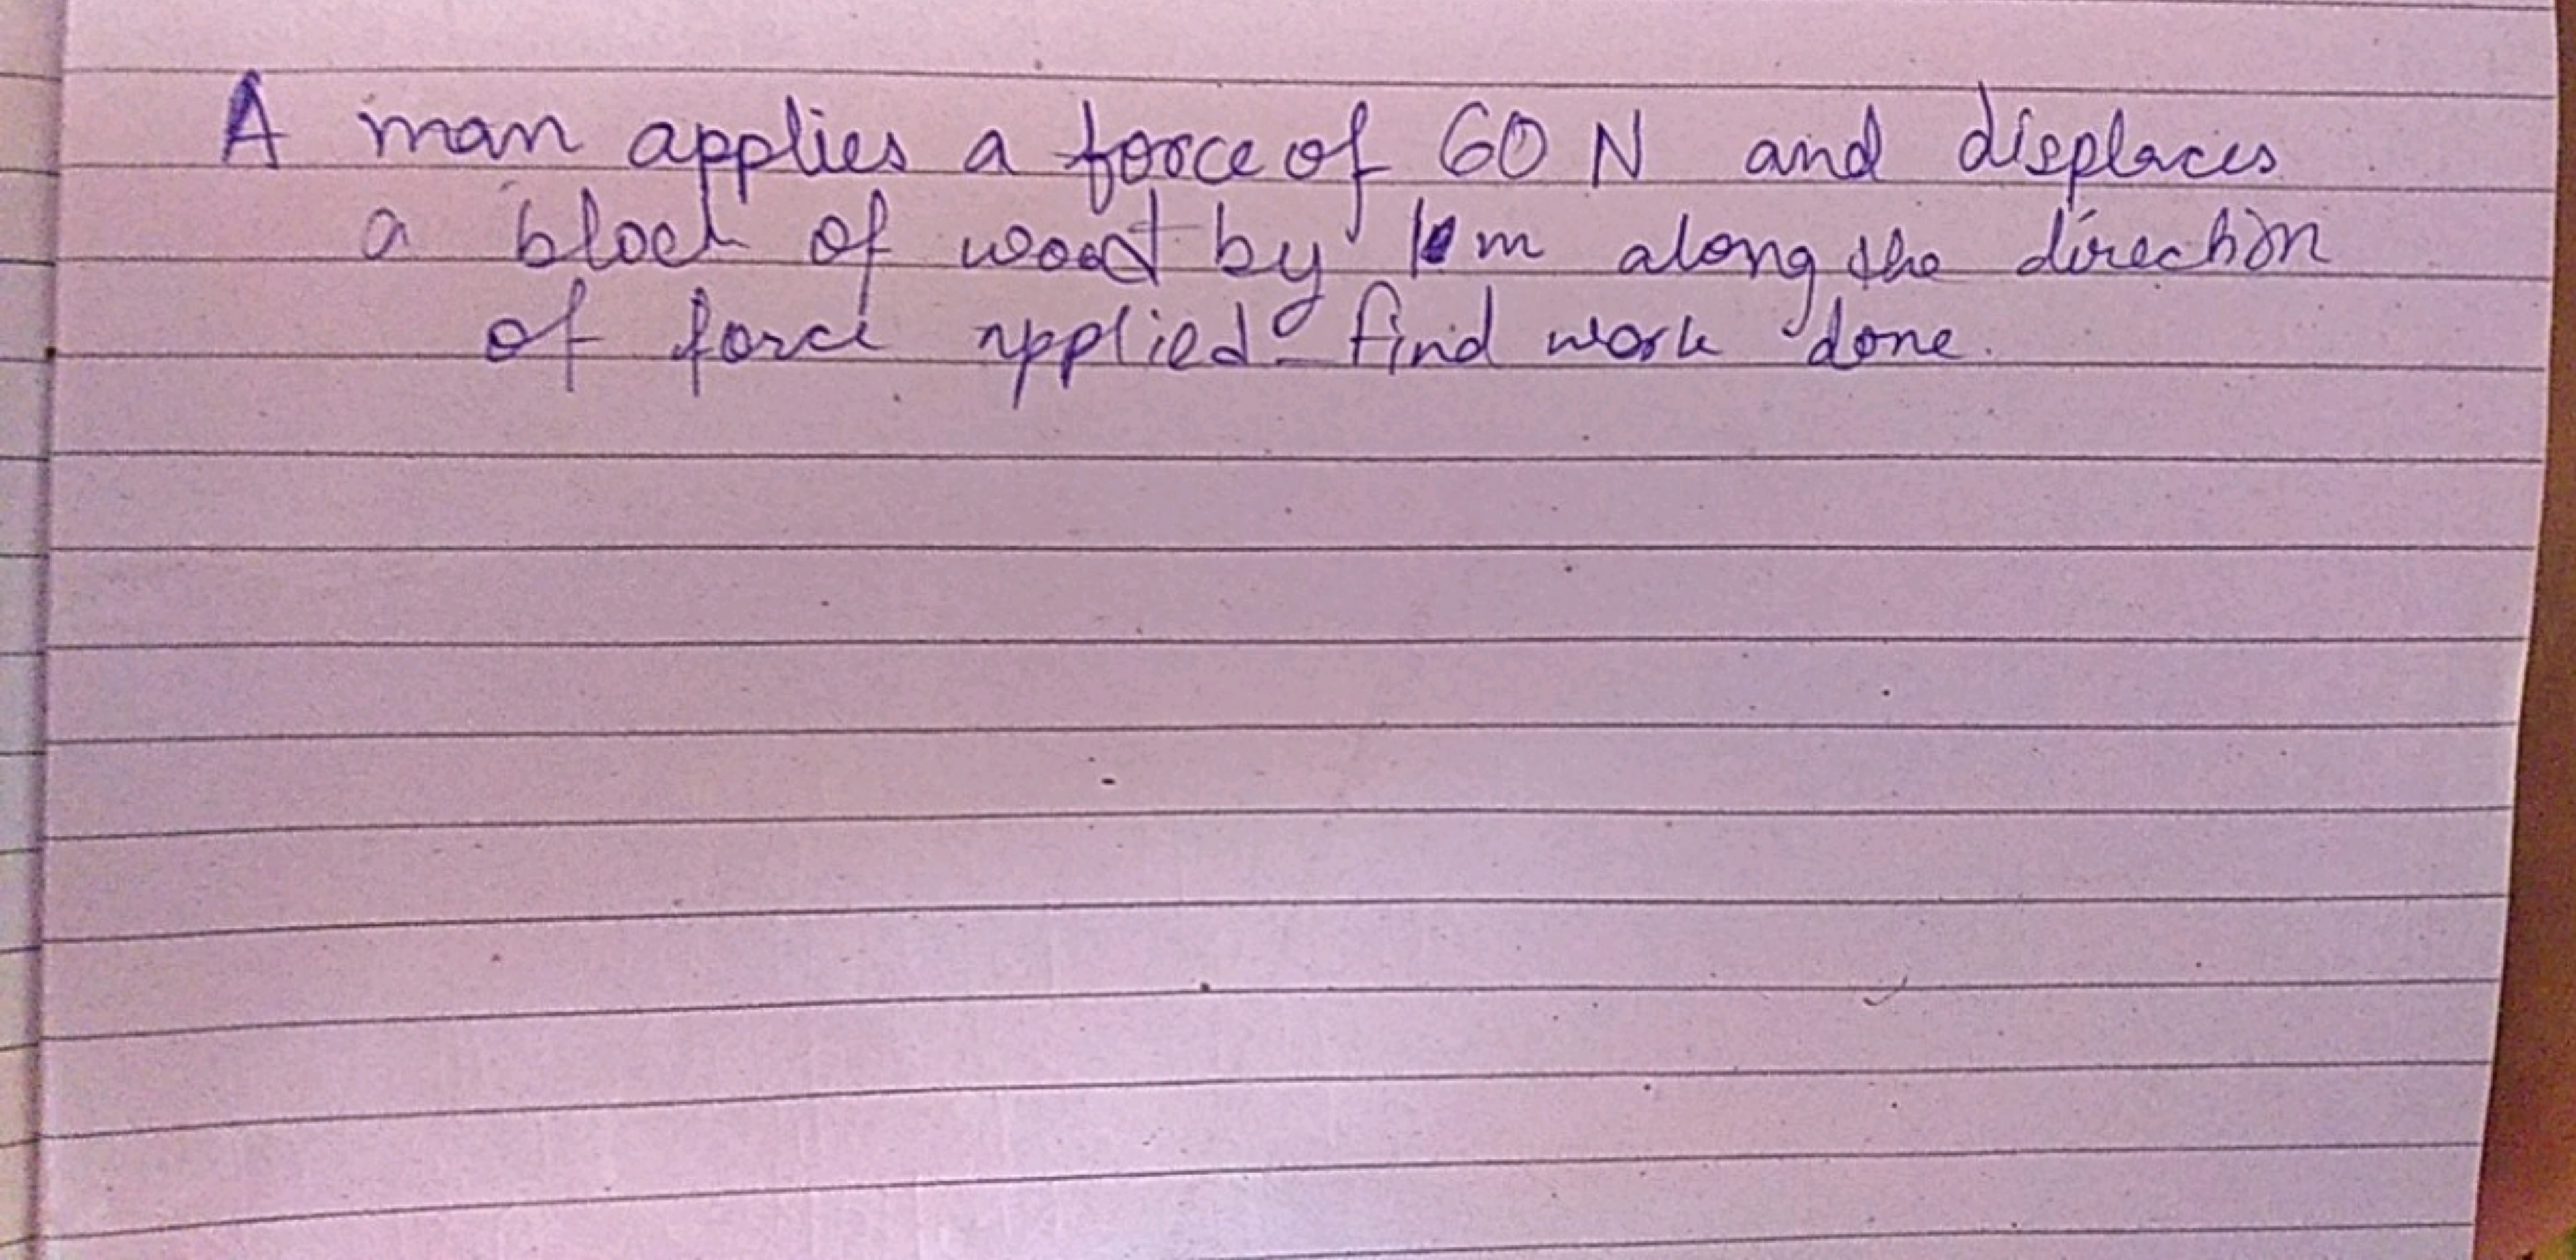 A man applies a force of 60 N and displaces
a block of wood by 10 m along the direction
of force applied. find work done.